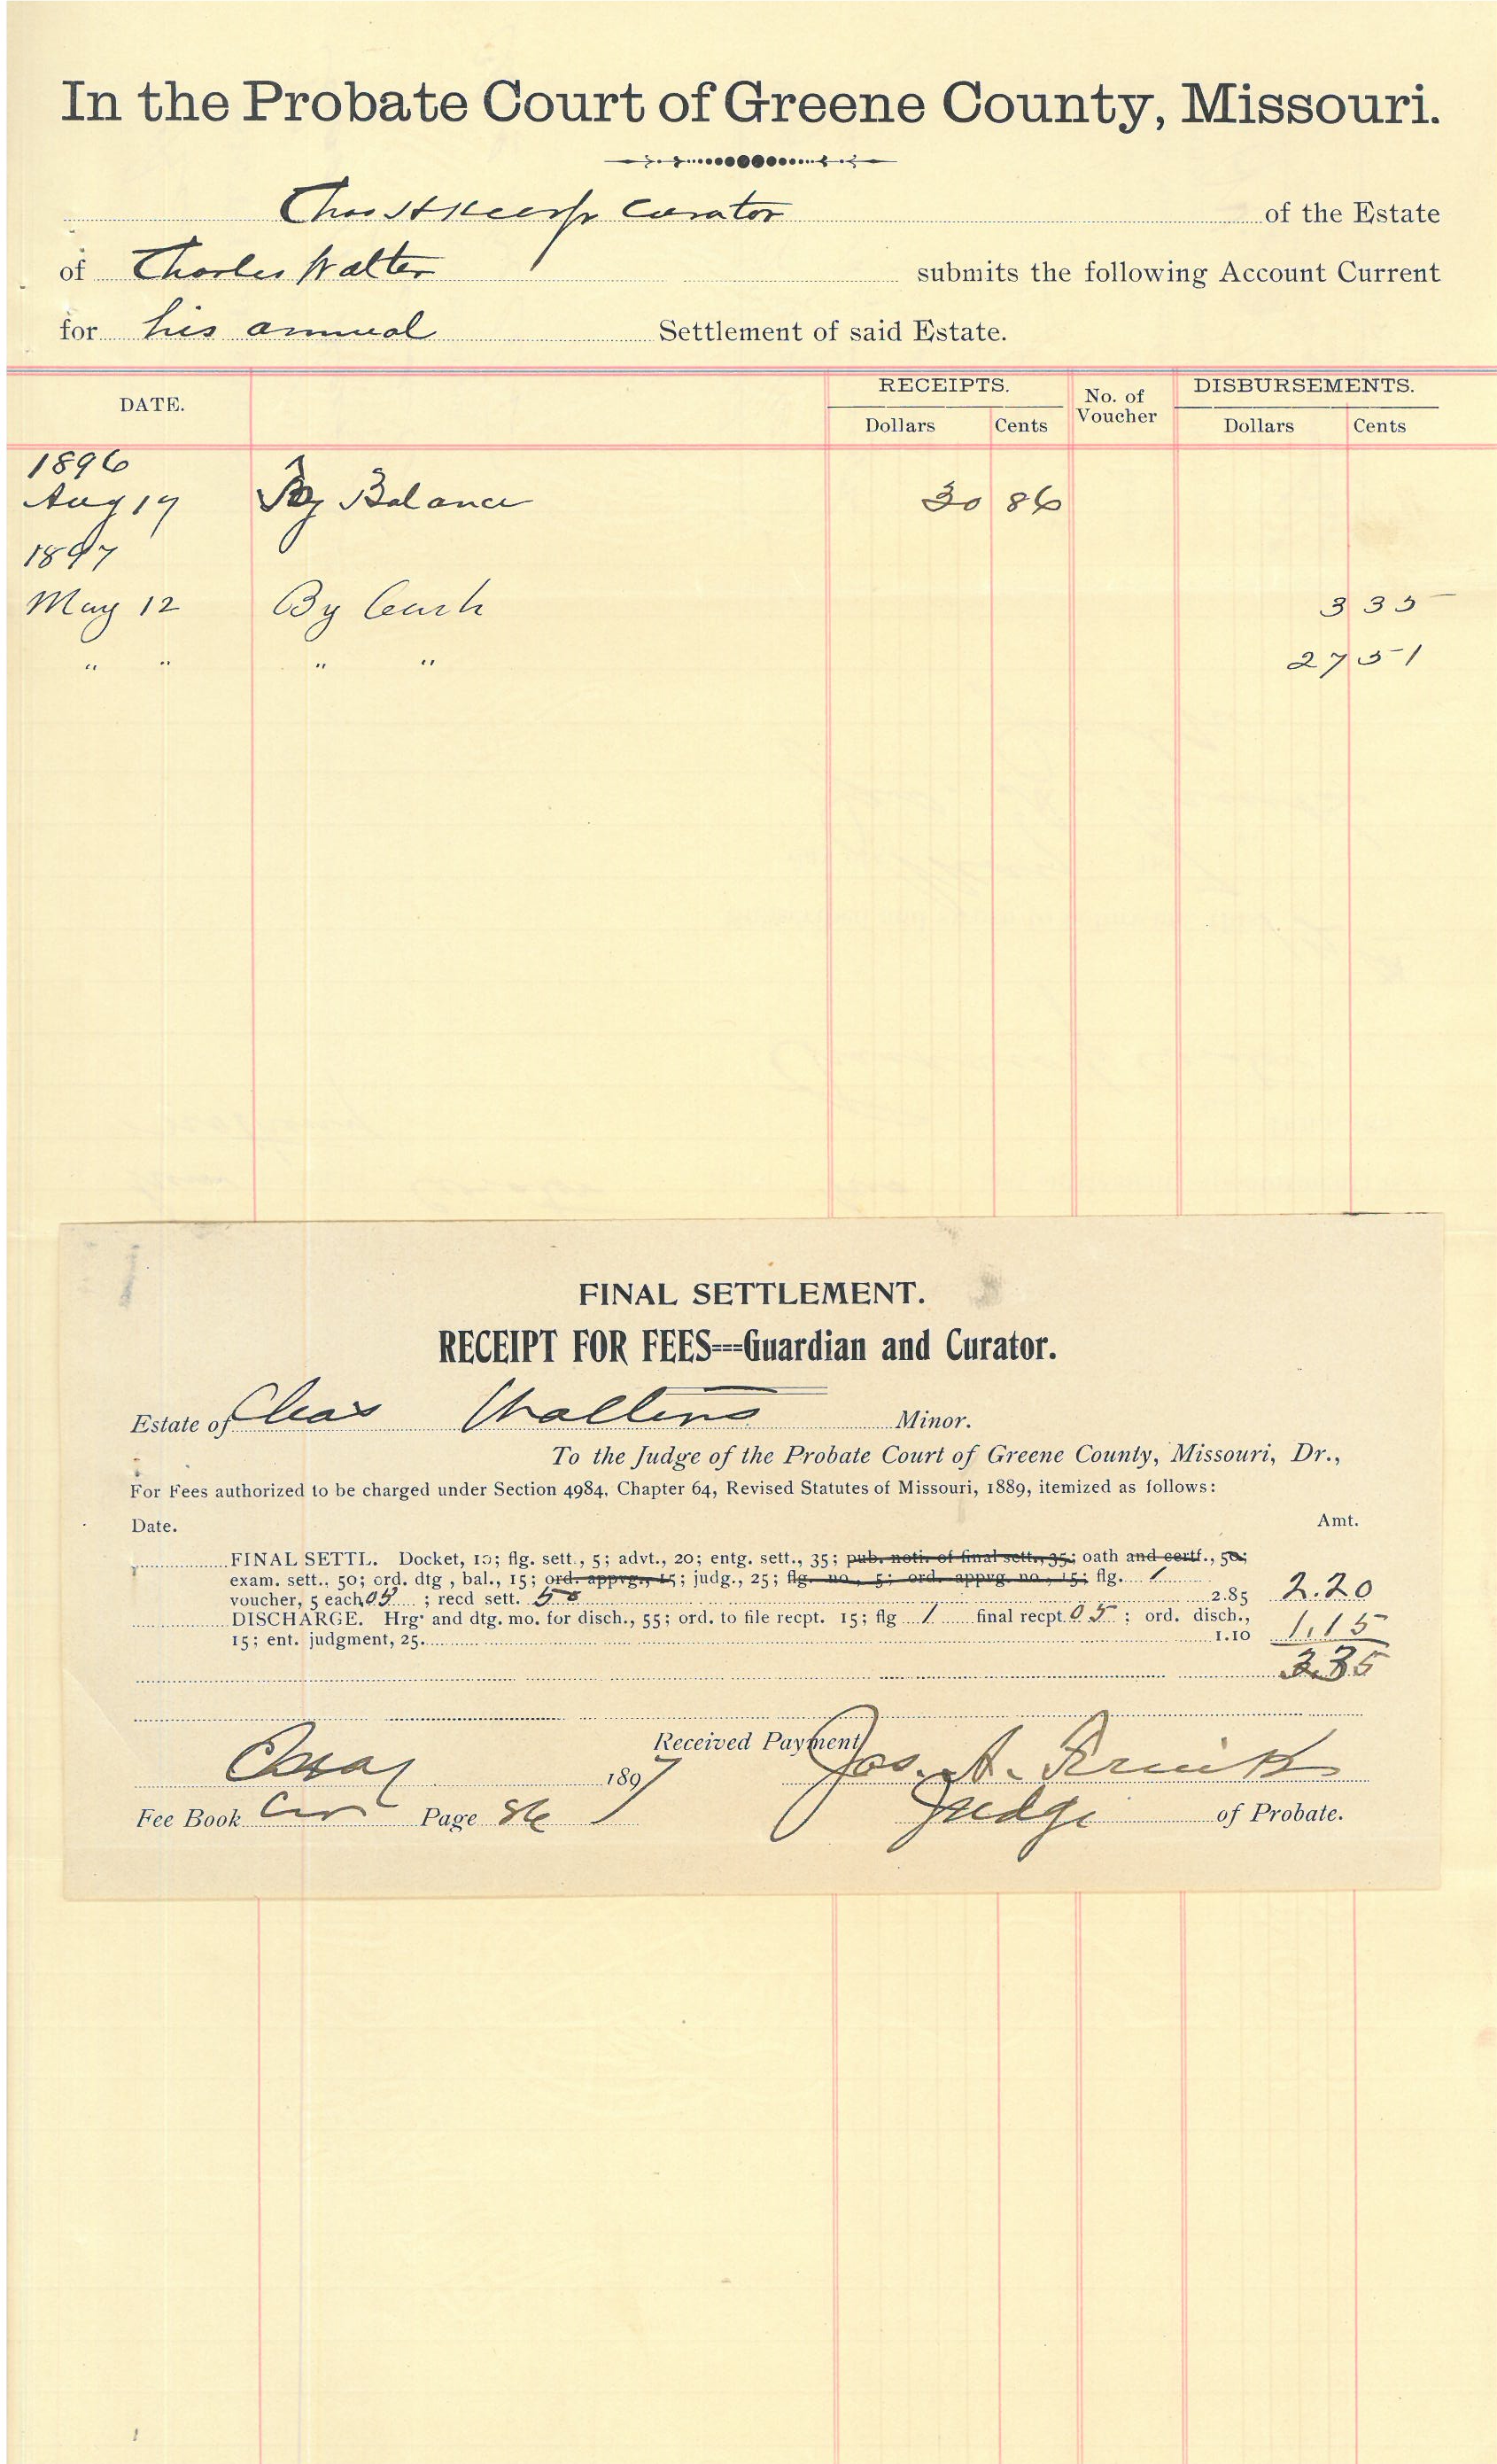 In the Probate Court of Greene County, Missouri.
Chas H Curator of the Estate
of Charles Walter submits the following Account Current
for his annual Settlement of said Estate.
DATE. RECEIPTS. No. of Voucher DISBURSEMENTS.
Dollars Cents Dollars Cents
1896
Aug 19 Balance 30 86
1897
May 12 By Cash 3 35
" " " " 27 51
FINAL SETTLEMENT.
RECEIPT FOR FEES---Guardian and Curator.
Estate of Chas Walters Minor.
To the Judge of the Probate Court of Greene County, Missouri, Dr.,
For Fees authorized to be charged under Section 4984, Chapter 64, Revised Statutes of Missouri, 1889, itemized as follows:
Date. Amt.
FINAL SETTL. Docket, 10; flg. sett., 5; advt., 20; entg. sett., 35; pub. noti. of final sett., 35; oath and certf., 50;
exam. sett., 50; ord. dtg, bal., 15; ord. appvg., 15; judg., 25; flg. no., 5; ord. appvg. no., 15; flg. 1
voucher, 5 each 05; recd sett. 50 2.85 2.20
DISCHARGE. Hrg. and dtg. mo. for disch., 55; ord. to file recpt. 15; flg 1 final recpt. 05; ord. disch.,
15; ent. judgment, 25. 1.10 1.15
3.35
Received Payment
May 1897 Jos. A.
Fee Book Page 86 Judge of Probate.